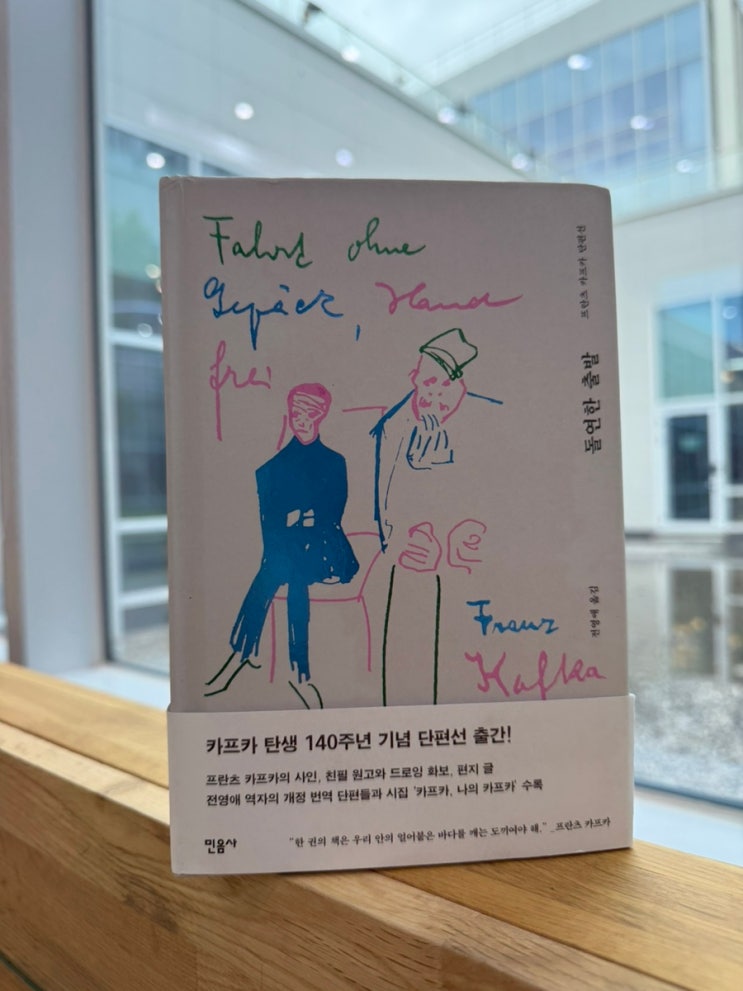 Fahrt ohne
Gepäck, Hand
frei
프란츠 카프카 단편선
돌연한 출발
전영애 옮김
Franz
Kafka
카프카 탄생 140주년 기념 단편선 출간!
프란츠 카프카의 사인, 친필 원고와 드로잉 화보, 편지 글
전영애 역자의 개정 번역 단편들과 시집 '카프카, 나의 카프카' 수록
"한 권의 책은 우리 안의 얼어붙은 바다를 깨는 도끼여야 해." _프란츠 카프카
민음사